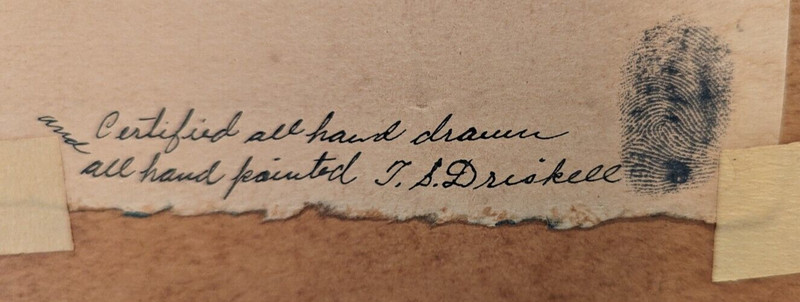 Certified all hand drawn
and all hand painted T.S.Driskell